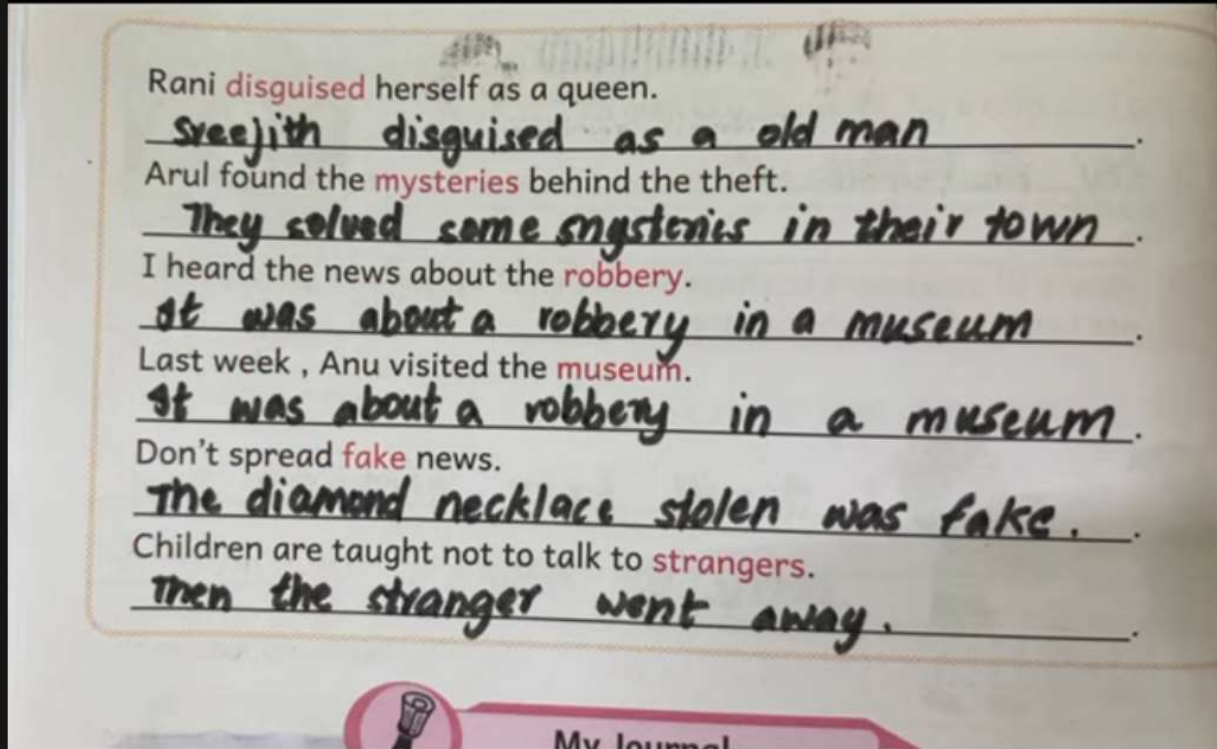 Rani disguised herself as a queen.
Sreejith disguised as a old man.
Arul found the mysteries behind the theft.
They solved some mysteries in their town.
I heard the news about the robbery.
It was about a robbery in a museum.
Last week , Anu visited the museum.
It was about a robbery in a museum.
Don't spread fake news.
The diamond necklace stolen was fake. .
Children are taught not to talk to strangers.
Then the stranger went away. .
My Journal